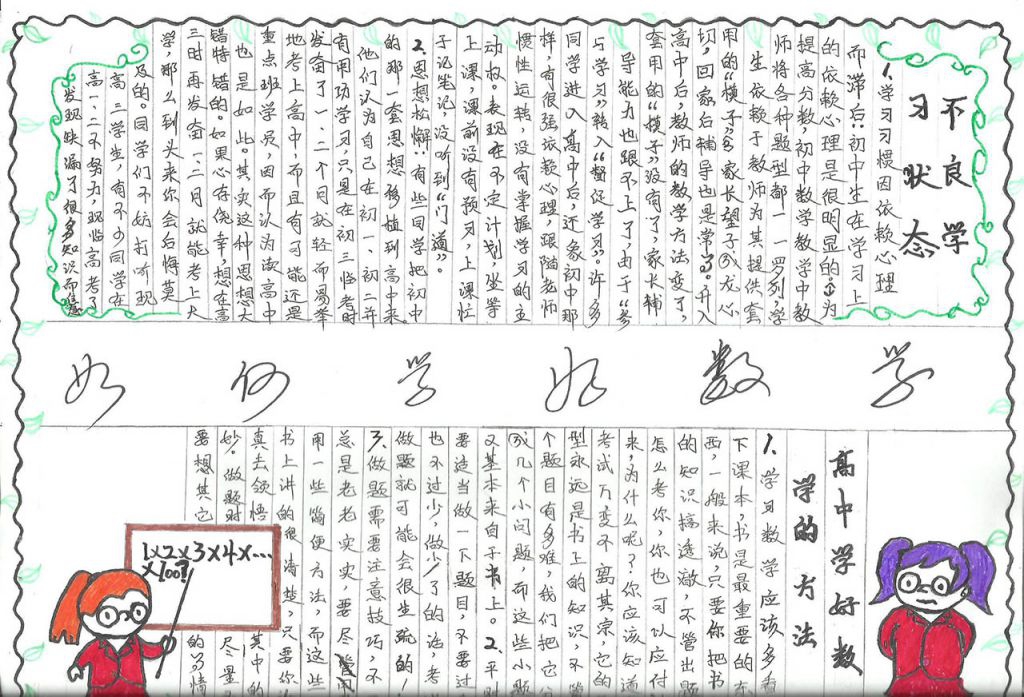 不良学
习状态
1.学习习惯因依赖心理
而滞后:初中生在学习上
的依赖心理是很明显的。①为
提高分数,初中数学教学中教
师将各种题型都一一罗列,学
生依赖于教师为其提供套
用的“模子”②家长望子成龙心
切,回家后辅导也是常了。升入
高中后,教师的教学方法变了,
套用的“模子”没有了,家长辅
导能力也跟不上了,由于“参
与学习”转入“督促学习”。许多
同学进入高中后,还象初中那
样,有很强依赖心理,跟随老师
惯性运转,没有掌握学习的主
动权。表现在不定计划,坐等
上课,课前没有预习,上课忙
于记笔记,没听到“门道”。
2.思想松懈:有些同学把初中
的那一套思想移植到高中来
他们认为自己在初一、初二并
有用功学习,只是在初三临考时
发奋了一、二个月就轻而易举
地考上高中,而且有可能还是
重点班学员,因而认为读高中
也是如此。其实这种思想大
错特错的。如果心存侥幸,想在高
三时再发奋一、二月就能考上大
学,那么到头来你会后悔莫
及的。同学们不妨打听现
高三学生,有不少同学在
高一、二不努力,现临高考了
发现缺漏了很多知识而
如何学好数学
高中学好数
学的方法
1.学习数学应该多看
下课本,书是最重要的东
西,一般来说,只要你把书
的知识搞透澈,不管出题
怎么考你,你也可以应付
来,为什么呢?你应该知道
考试万变不离其宗,它的
型永远是书上的知识,不管
个题目有多难,我们把它分
成几个小问题,而这些小题
又基本来自于书上。2.平时
要适当做一下题目,不要过
也不过少,做少了的话,考
做题就可能会很生疏的!
3.做题需要注意技巧,不
总是老老实实,要尽管
用一些简便方法,而这些
书上讲的很清楚,只要你
真去领悟其中的
妙。做题时尽量
要想其它的多情
1×2×3×4×…
×100?